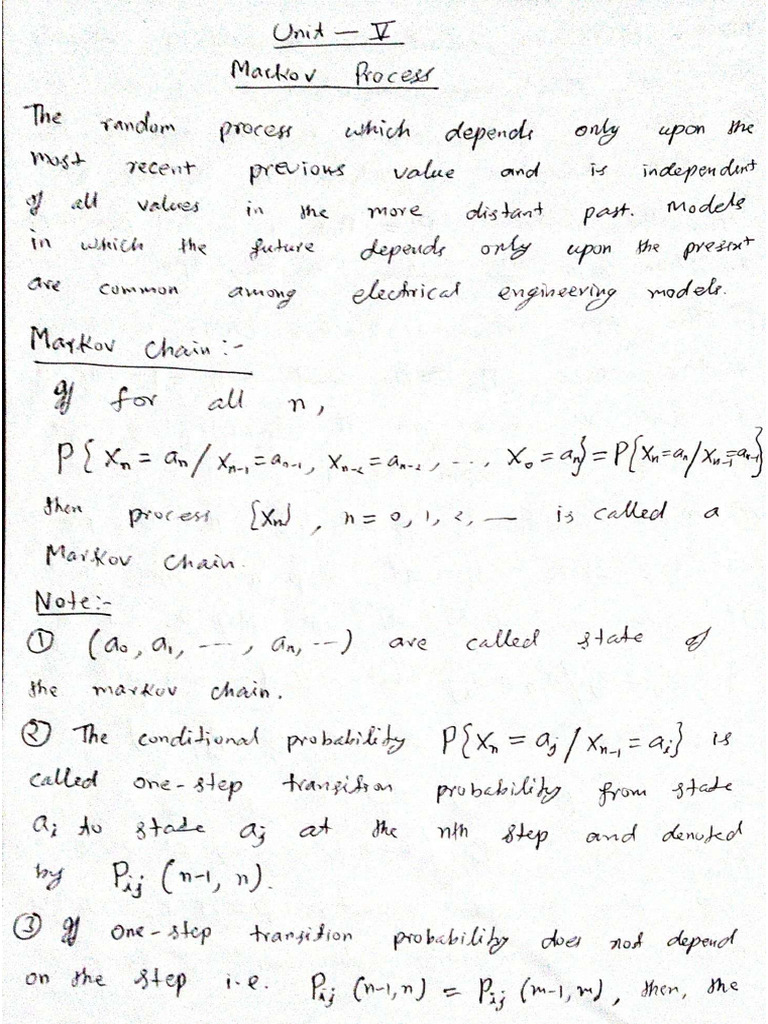 Unit - V
Markov Process
The random process which depends only upon the
most recent previous value and is independent
of all values in the more distant past. Models
in which the future depends only upon the present
are common among electrical engineering models.
Markov Chain :-
If for all n,
P{Xn = an / Xn-1 = an-1, Xn-2 = an-2, ..., X0 = an} = P{Xn = an / Xn-1 = an-1}
then process {Xn}, n = 0, 1, 2, — is called a
Markov Chain.
Note:-
① (a0, a1, ---, an, --) are called state of
the markov chain.
② The conditional probability P{Xn = aj / Xn-1 = ai} is
called one-step transition probability from state
ai to state aj at the nth step and denoted
by Pij (n-1, n).
③ If one-step transition probability does not depend
on the step i.e. Pij (n-1, n) = Pij (m-1, m), then, the